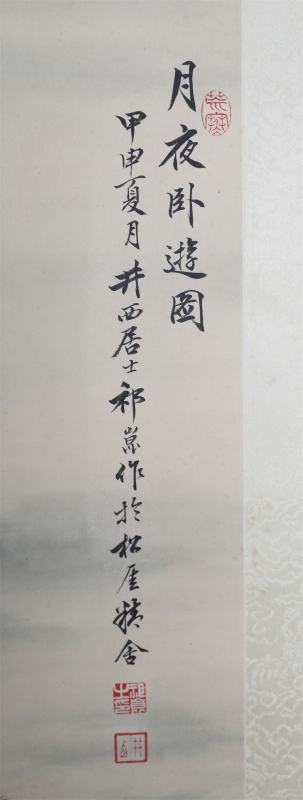 月夜卧遊圖
甲申夏月井西居士祁崑作於松厓精舍